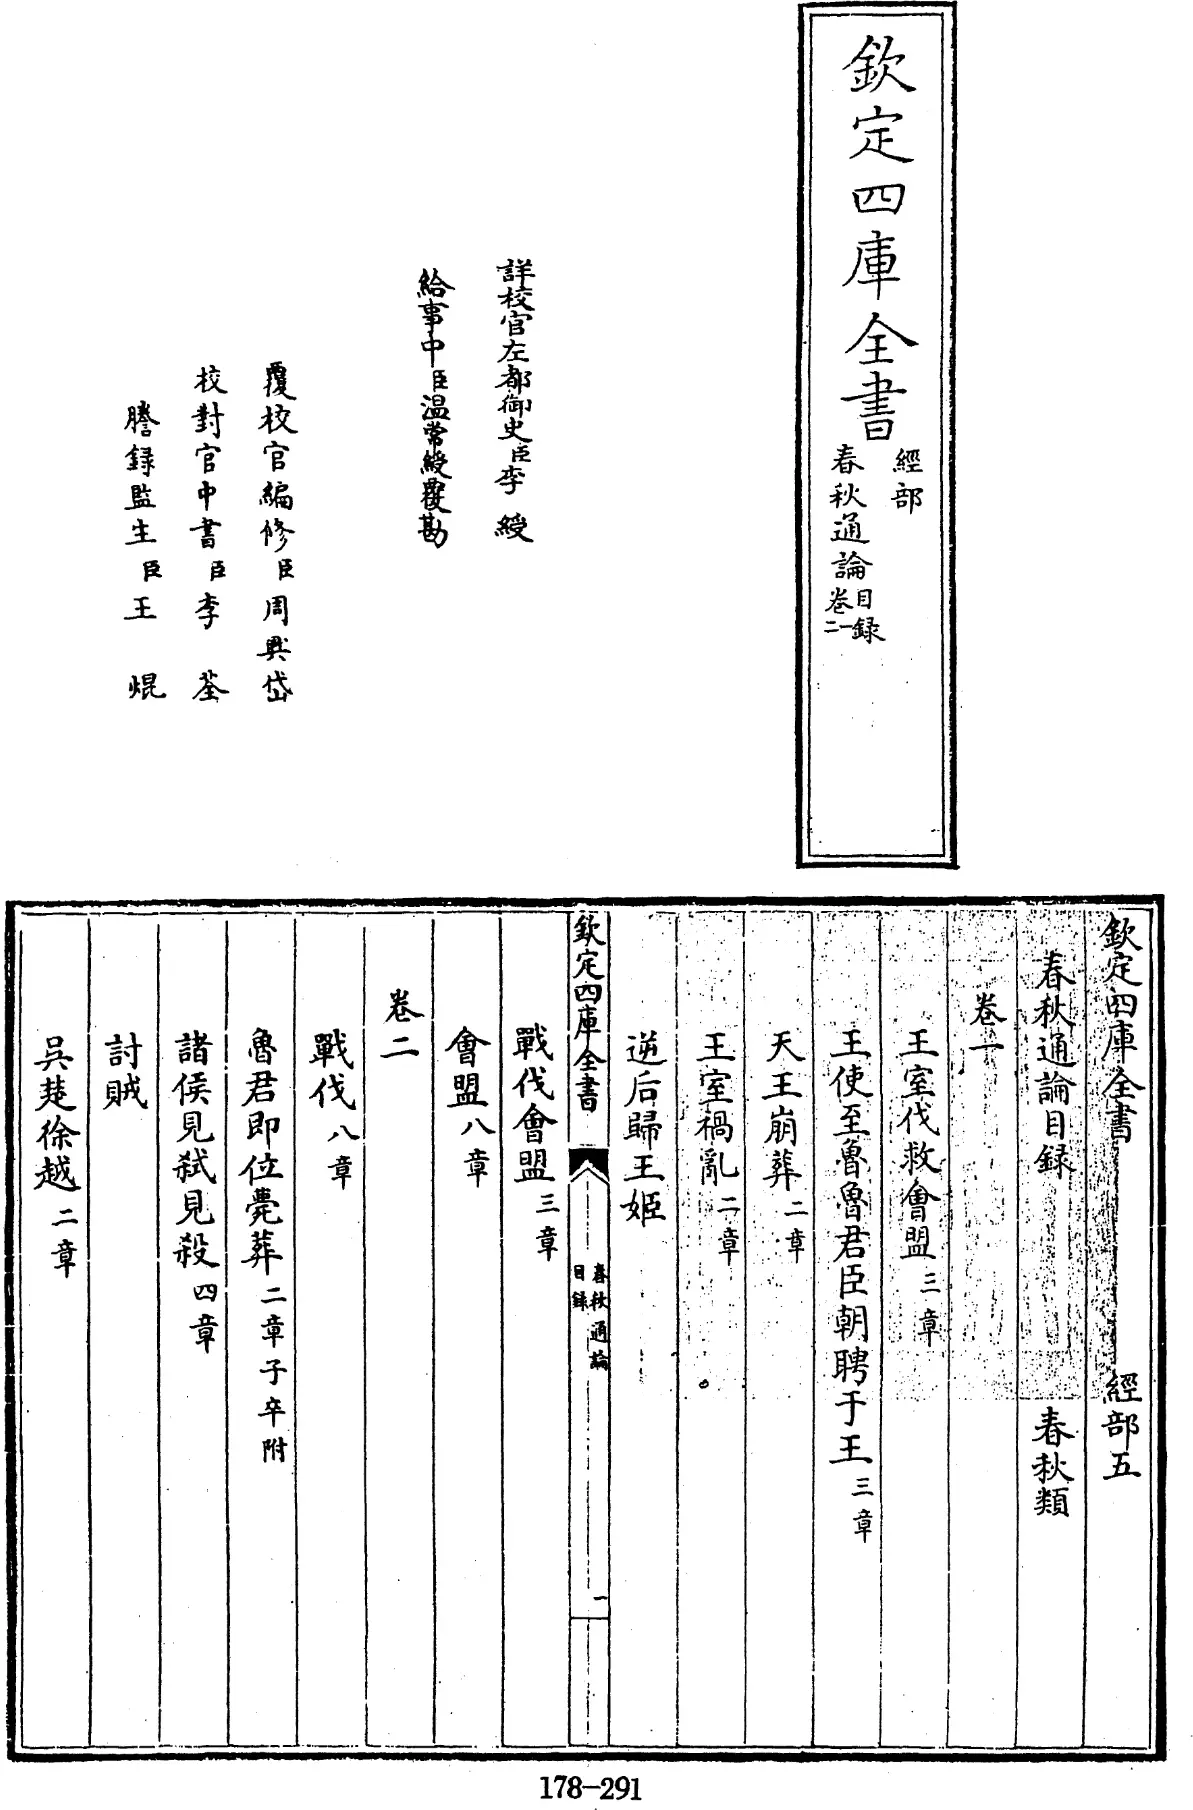 欽定四庫全書
經部
春秋通論目録
卷一
二
詳校官左都御史臣李綬
給事中臣温常綬覆勘
覆校官編修臣周興岱
校對官中書臣李荃
謄録監生臣王焜
欽定四庫全書 經部五
春秋通論目録 春秋類
卷一
王室伐救會盟三章
王使至魯魯君臣朝聘于王三章
天王崩葬二章
王室禍亂二章
逆后歸王姬
欽定四庫全書
春秋通論
目録
一
戰伐會盟三章
會盟八章
卷二
戰伐八章
魯君即位薨葬二章子卒附
諸侯見弑見殺四章
討賊
吳楚徐越二章
178-291